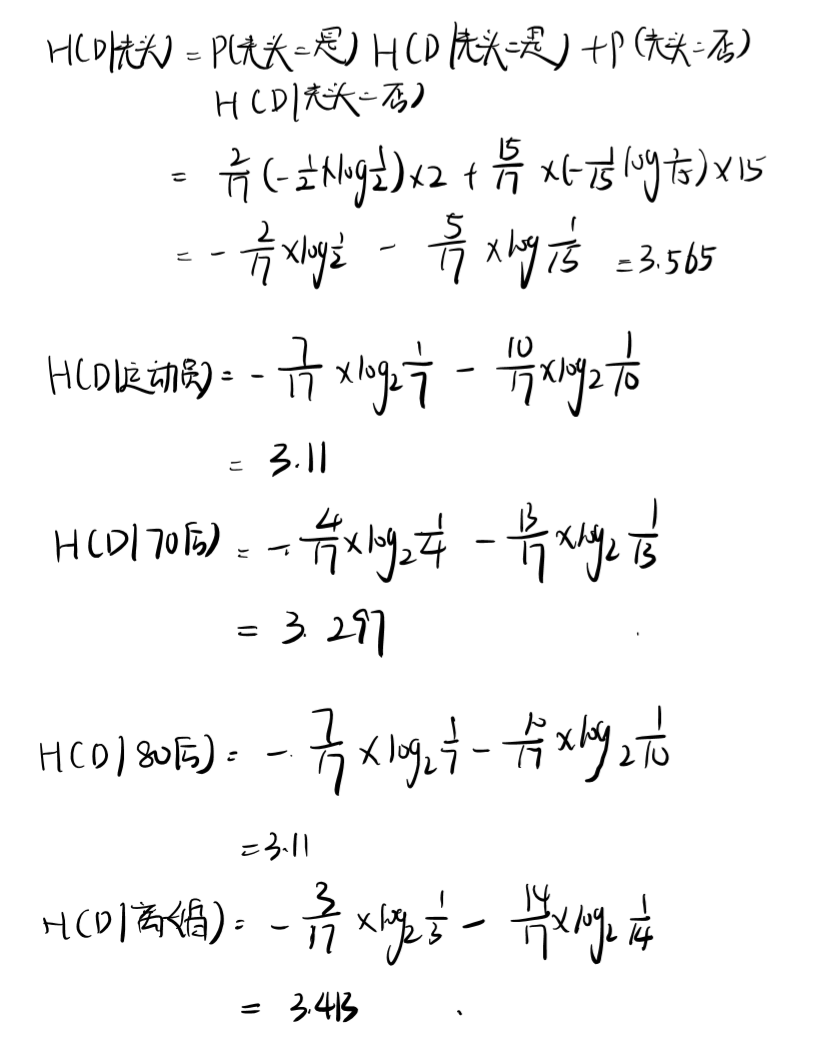 H(D|光头) = P(光头=是) H(D|光头=是) + P(光头=否)
H(D|光头=否)
= 2/17 (-1/2 × log 1/2) × 2 + 15/17 × (-1/15 log 1/15) × 15
= - 2/17 × log 1/2 - 5/17 × log 1/15 = 3.565
H(D|运动员) = - 7/17 × log₂ 1/7 - 10/17 × log₂ 1/10
= 3.11
H(D|70后) = - 4/17 × log₂ 1/4 - 13/17 × log₂ 1/13
= 3.297
H(D|80后) = - 7/17 × log₂ 1/7 - 10/17 × log₂ 1/10
= 3.11
H(D|离婚) = - 3/17 × log₂ 1/3 - 14/17 × log₂ 1/14
= 3.413